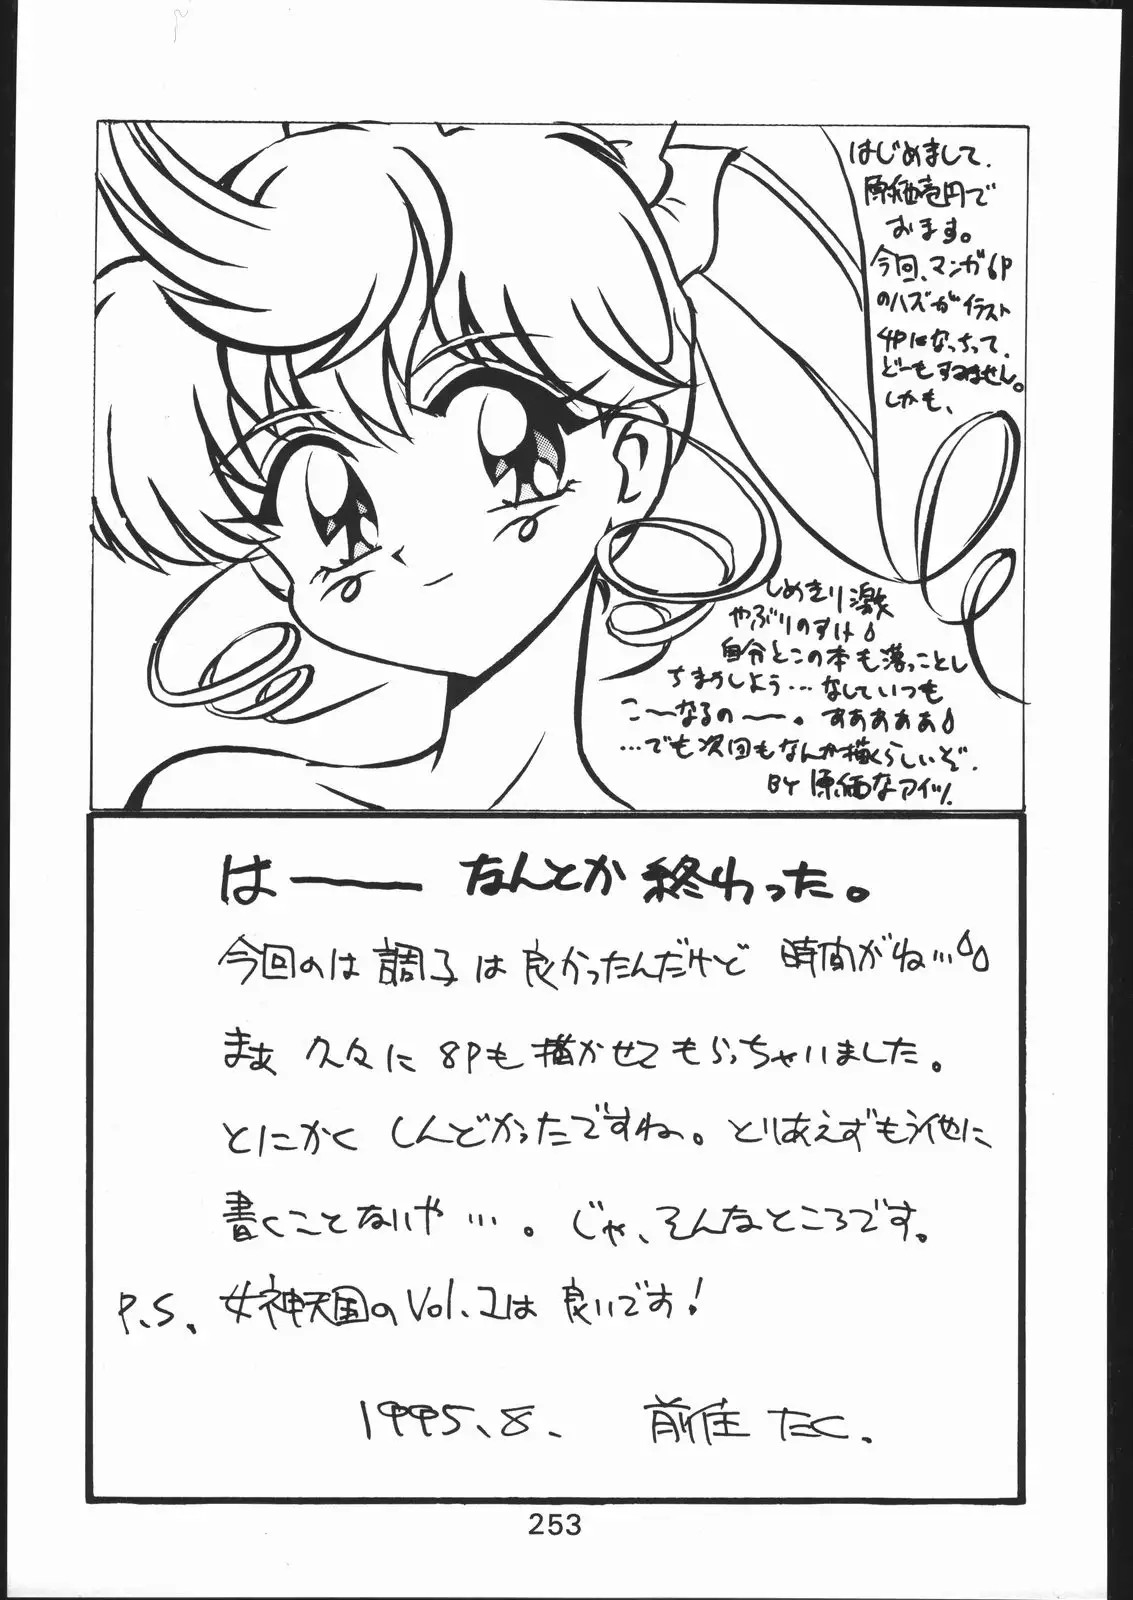 はじめまして.
原価壱円で
おます。
今回、マンガ6P
のハズがイラスト
4Pになっちって、
どーもすみません。
しかも、
しめきり激
やぶりのすけ
自分とこの本も落っことし
ちまうしよう…なしていつも
こ〜なるの〜。すあああああ
…でも次回もなんか描くらしいぞ.
BY 原価なアイツ.
は―― なんとか終わった。
今回のは調子は良かったんだけど 時間がね…
まあ 久々に 8Pも描かせてもらっちゃいました。
とにかく しんどかったですね。とりあえずもう他に
書くことないや…。じゃ、そんなところです。
P.S. 女神天国のVol.2は良いです!
1995.8. 前住たく.
253